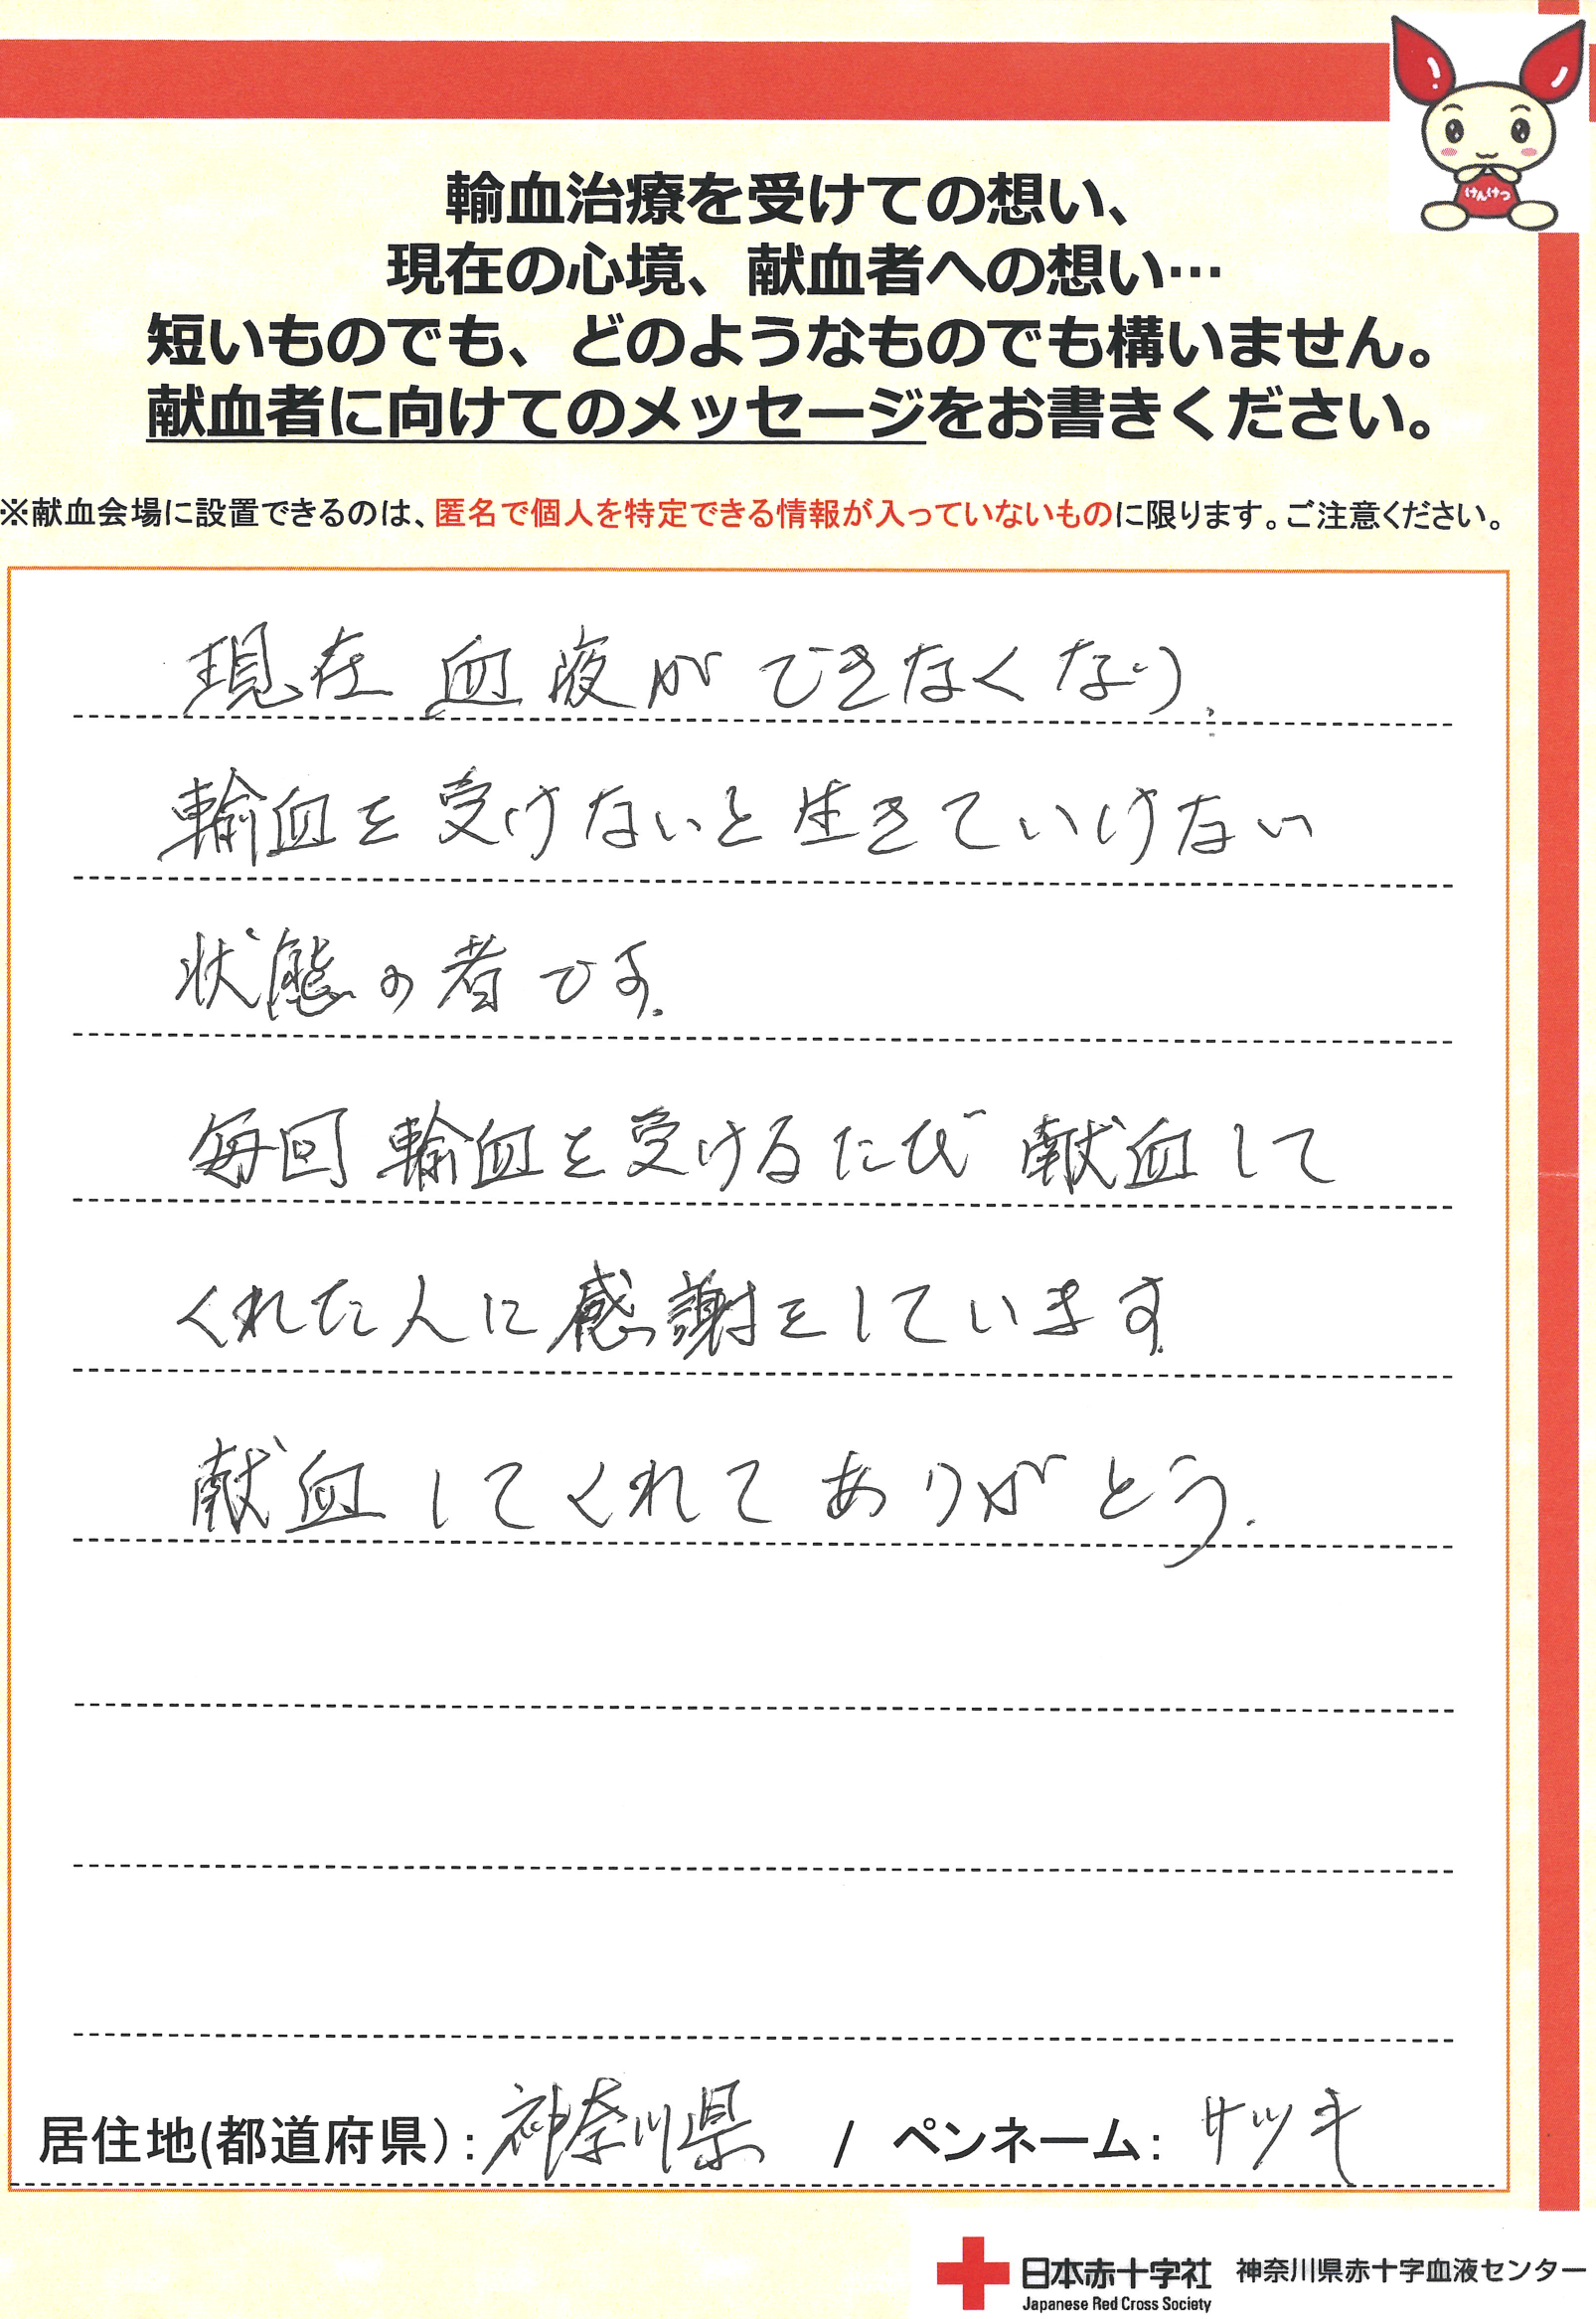 けんけつ
輸血治療を受けての想い、
現在の心境、献血者への想い…
短いものでも、どのようなものでも構いません。
献血者に向けてのメッセージをお書きください。
※献血会場に設置できるのは、匿名で個人を特定できる情報が入っていないものに限ります。ご注意ください。
現在 血液ができなくなり、
輸血を受けないと生きていけない
状態の者です.
毎回 輸血を受けるたび 献血して
くれた人に感謝をしています.
献血してくれて ありがとう.
居住地(都道府県)：神奈川県 / ペンネーム：サツキ
日本赤十字社 神奈川県赤十字血液センター
Japanese Red Cross Society